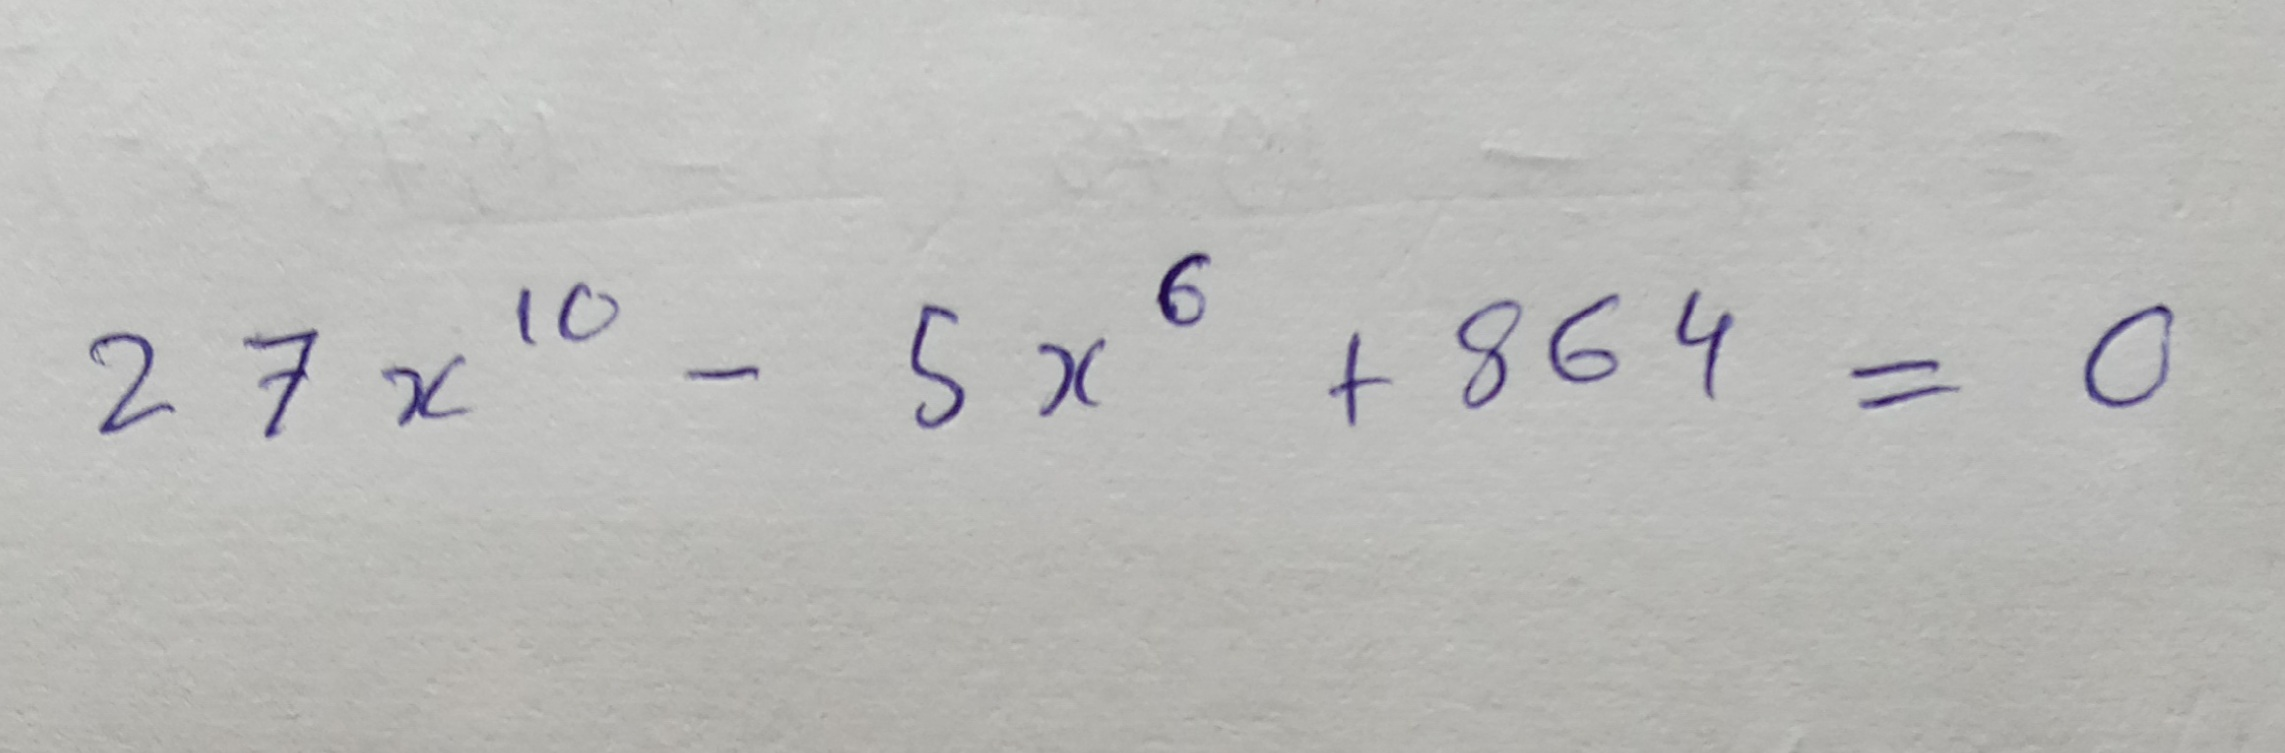 27x¹⁰ - 5x⁶ + 864 = 0